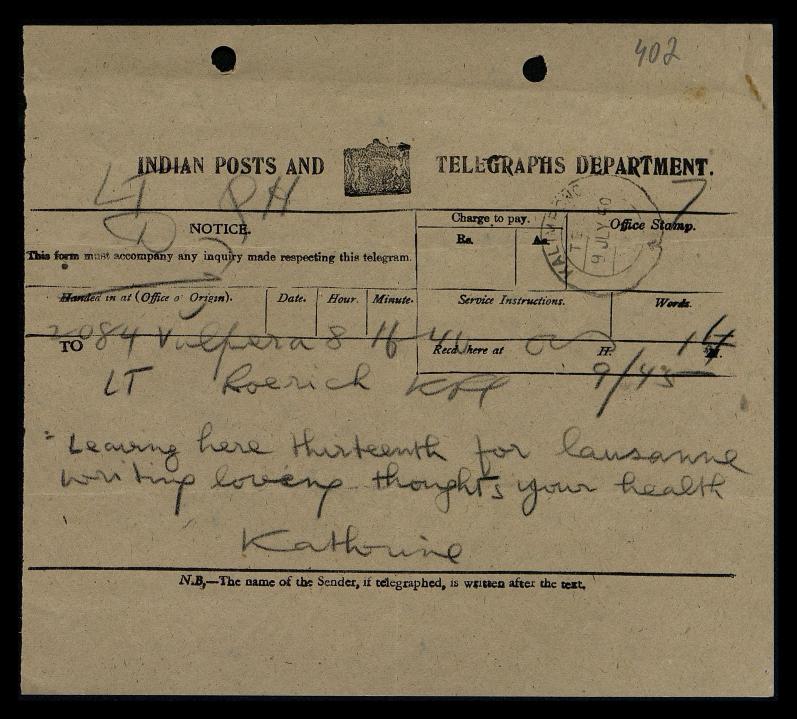 402
INDIAN POSTS AND TELEGRAPHS DEPARTMENT.
LT PH 7
NOTICE.
This form must accompany any inquiry made respecting this telegram.
Charge to pay.
Rs. As.
Office Stamp.
KALIMPONG
9 JLY 50
Handed in at (Office of Origin). Date. Hour. Minute. Service Instructions. Words.
2084 Vulpera 8 16 14
TO Recd. here at H. M.
9/45
LT Roerich KPG
= Leaving here thirteenth for lausanne
writing loving thoughts your health
Katherine
N.B,—The name of the Sender, if telegraphed, is written after the text.